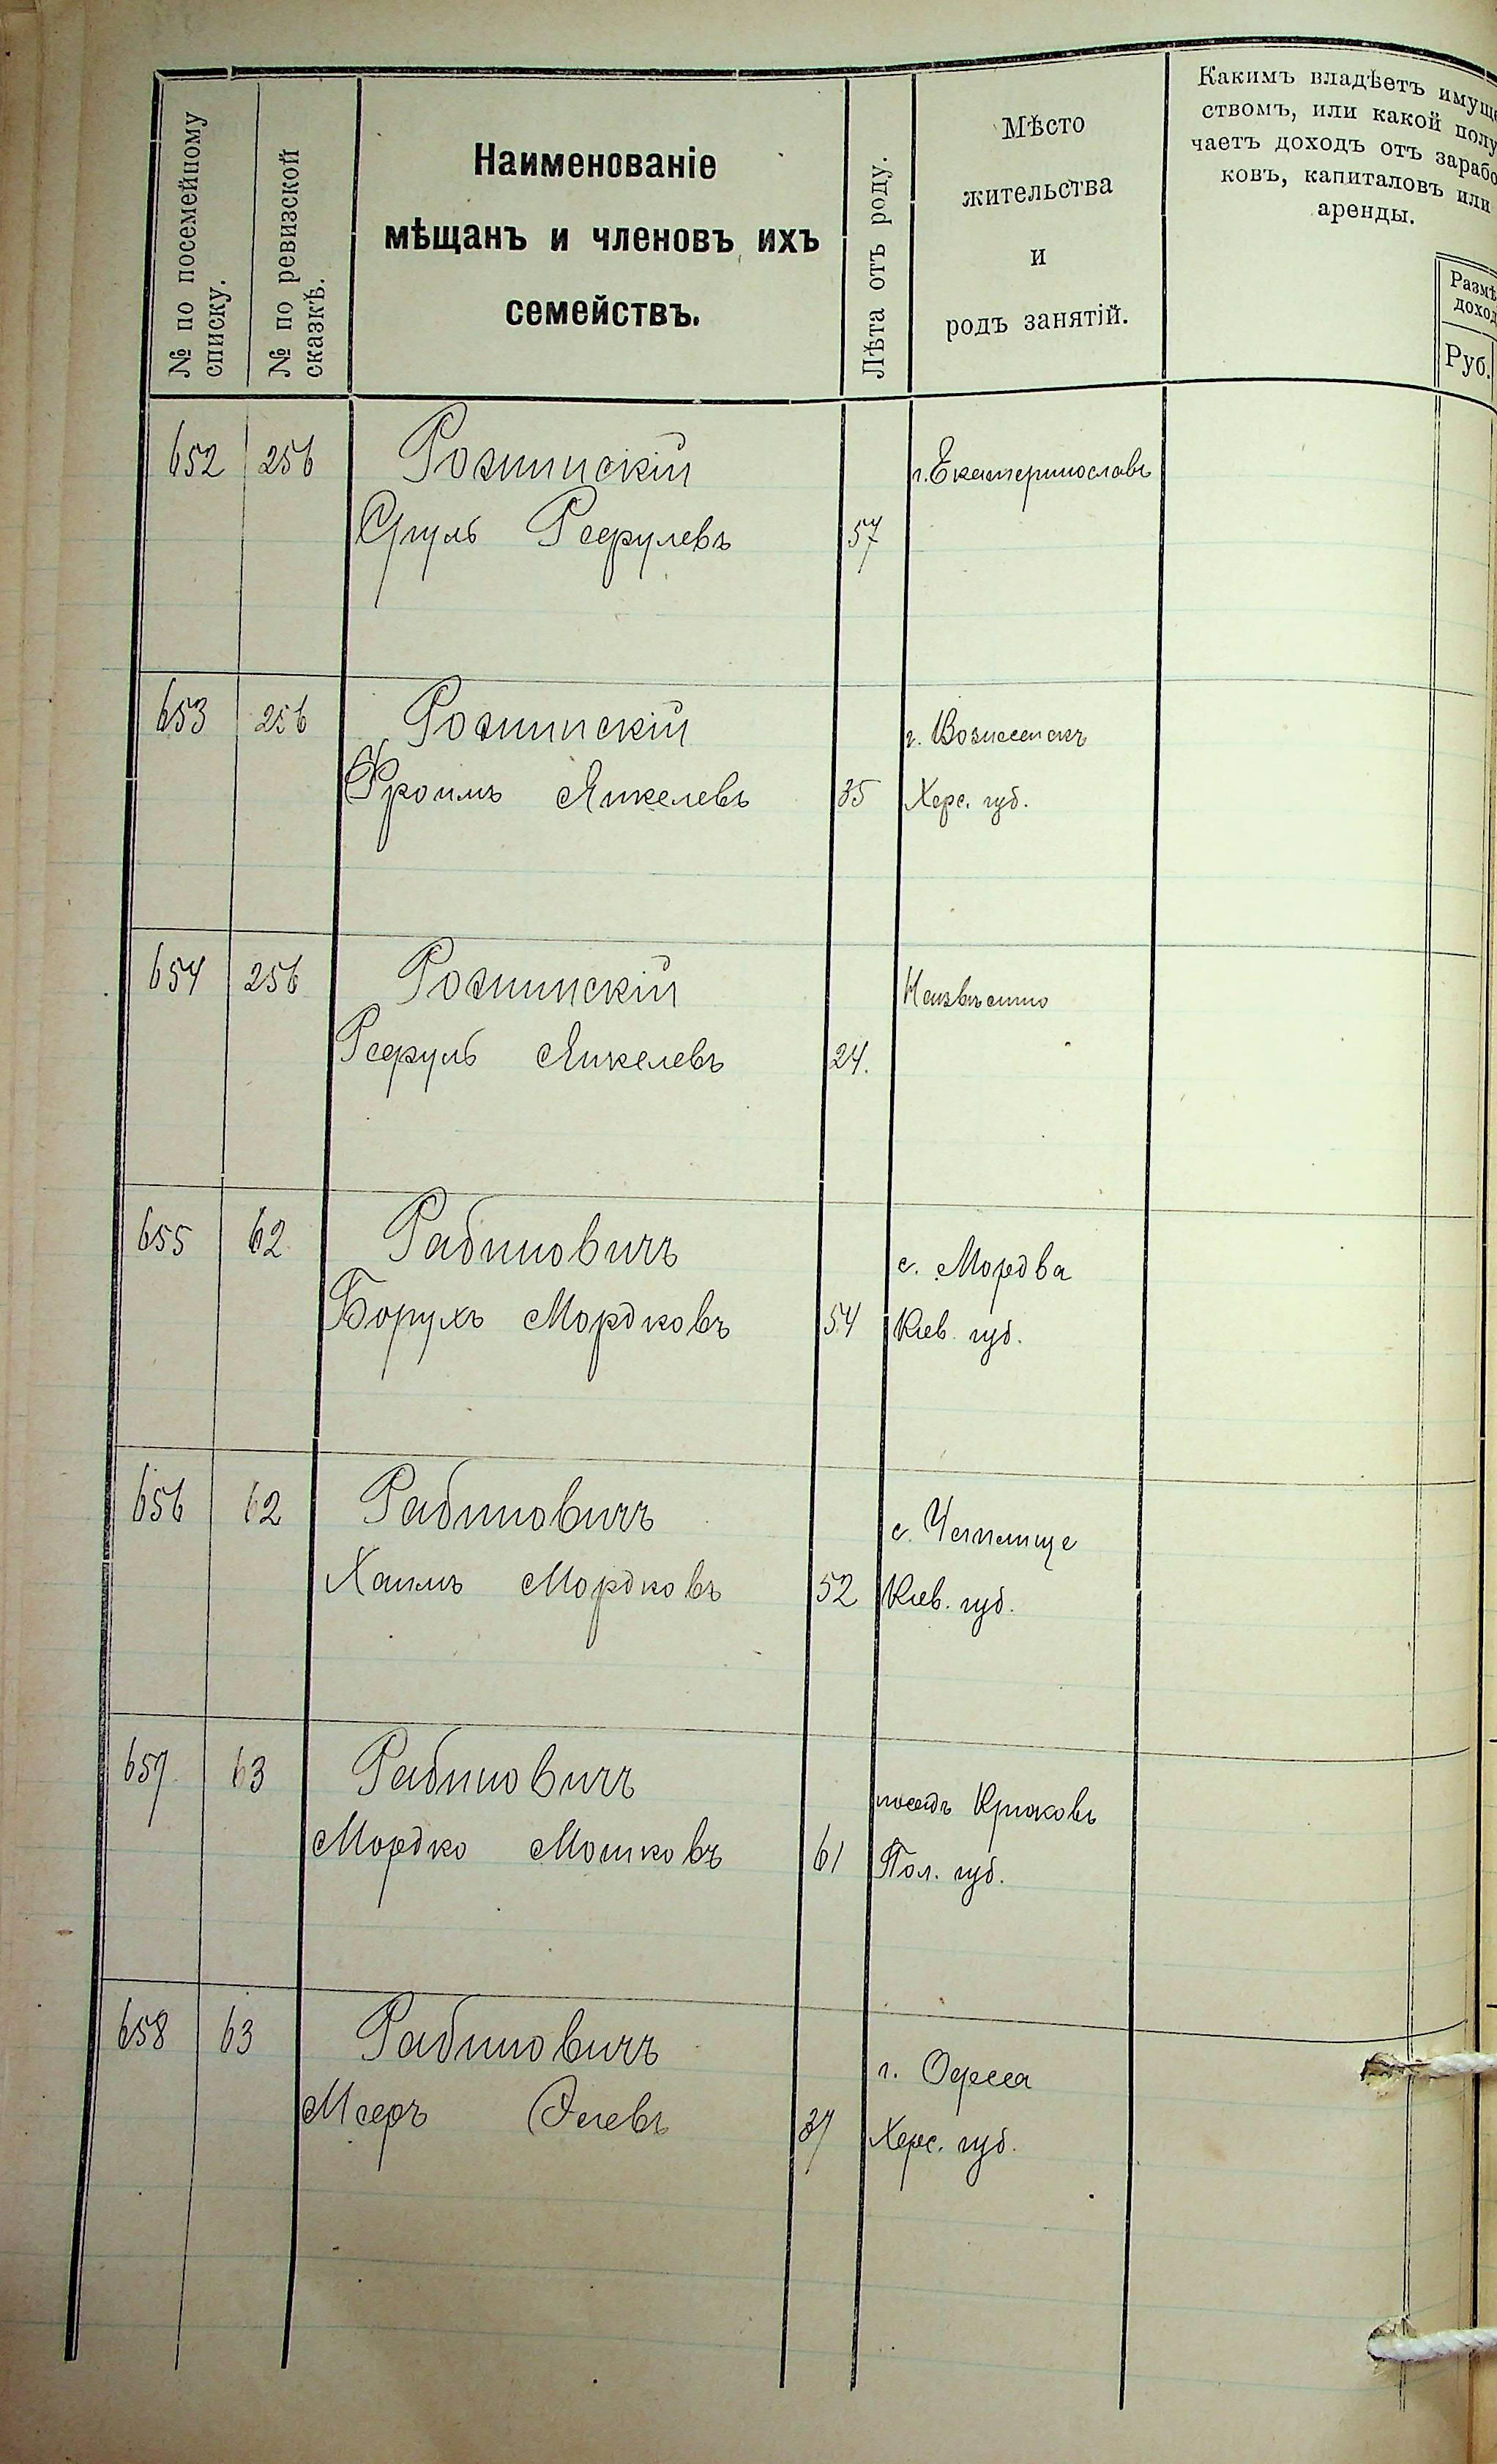 № по посемейному
списку.
№ по ревизской
сказкѣ.
Наименованіе
мѣщанъ и членовъ ихъ
семействъ.
Лѣта отъ роду.
Мѣсто
жительства
и
родъ занятій.
Какимъ владѣетъ имуще
ствомъ, или какой полу
чаетъ доходъ отъ зарабо
ковъ, капиталовъ или
аренды.
Размѣ
доход
Руб.
652 256 г. Екатеринославъ
Сруль Рефулевъ 57
653 256 г. Вознесенскъ
Фроимъ Янкелевъ 35 Херс. губ.
654 256 Неизвѣстно
Рефуль Янкелевъ 24.
655 62 Рабиновичъ с. Мордва
Борухъ Мордковъ 54 Кіев. губ.
656 62 Рабиновичъ с.
Хаимъ Мордковъ 52 Кіев. губ.
657 63 Рабиновичъ посадъ Крюковъ
Мордко Мошковъ 61 Пол. губ.
658 63 Рабиновичъ г. Одесса
Мееръ 37 Херс. губ.